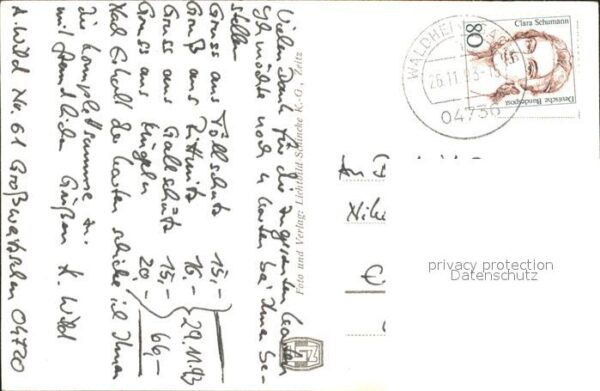 Vielen Dank für die zugesandten Karten
Ich möchte noch 4 Karten bei Ihnen be-
stellen
Gruss aus Töllschütz 15,-
Gruß aus Zittwitz 16,-
Gruss aus Gallschütz 15,-
Gruss aus Mügeln 20,-
66,-
29.11.93
Nach Erhalt der Karten schicke ich Ihnen
die Komplettsumme zu.
mit freundlichen Grüßen K. Wild
K. Wild Nr. 61 Großweitzschen 04720
Foto und Verlag: Lichtbild Schincke K.-G., Zeitz
Clara Schumann
80
Deutsche Bundespost
WALDHEIM
04736
privacy protection
Datenschutz